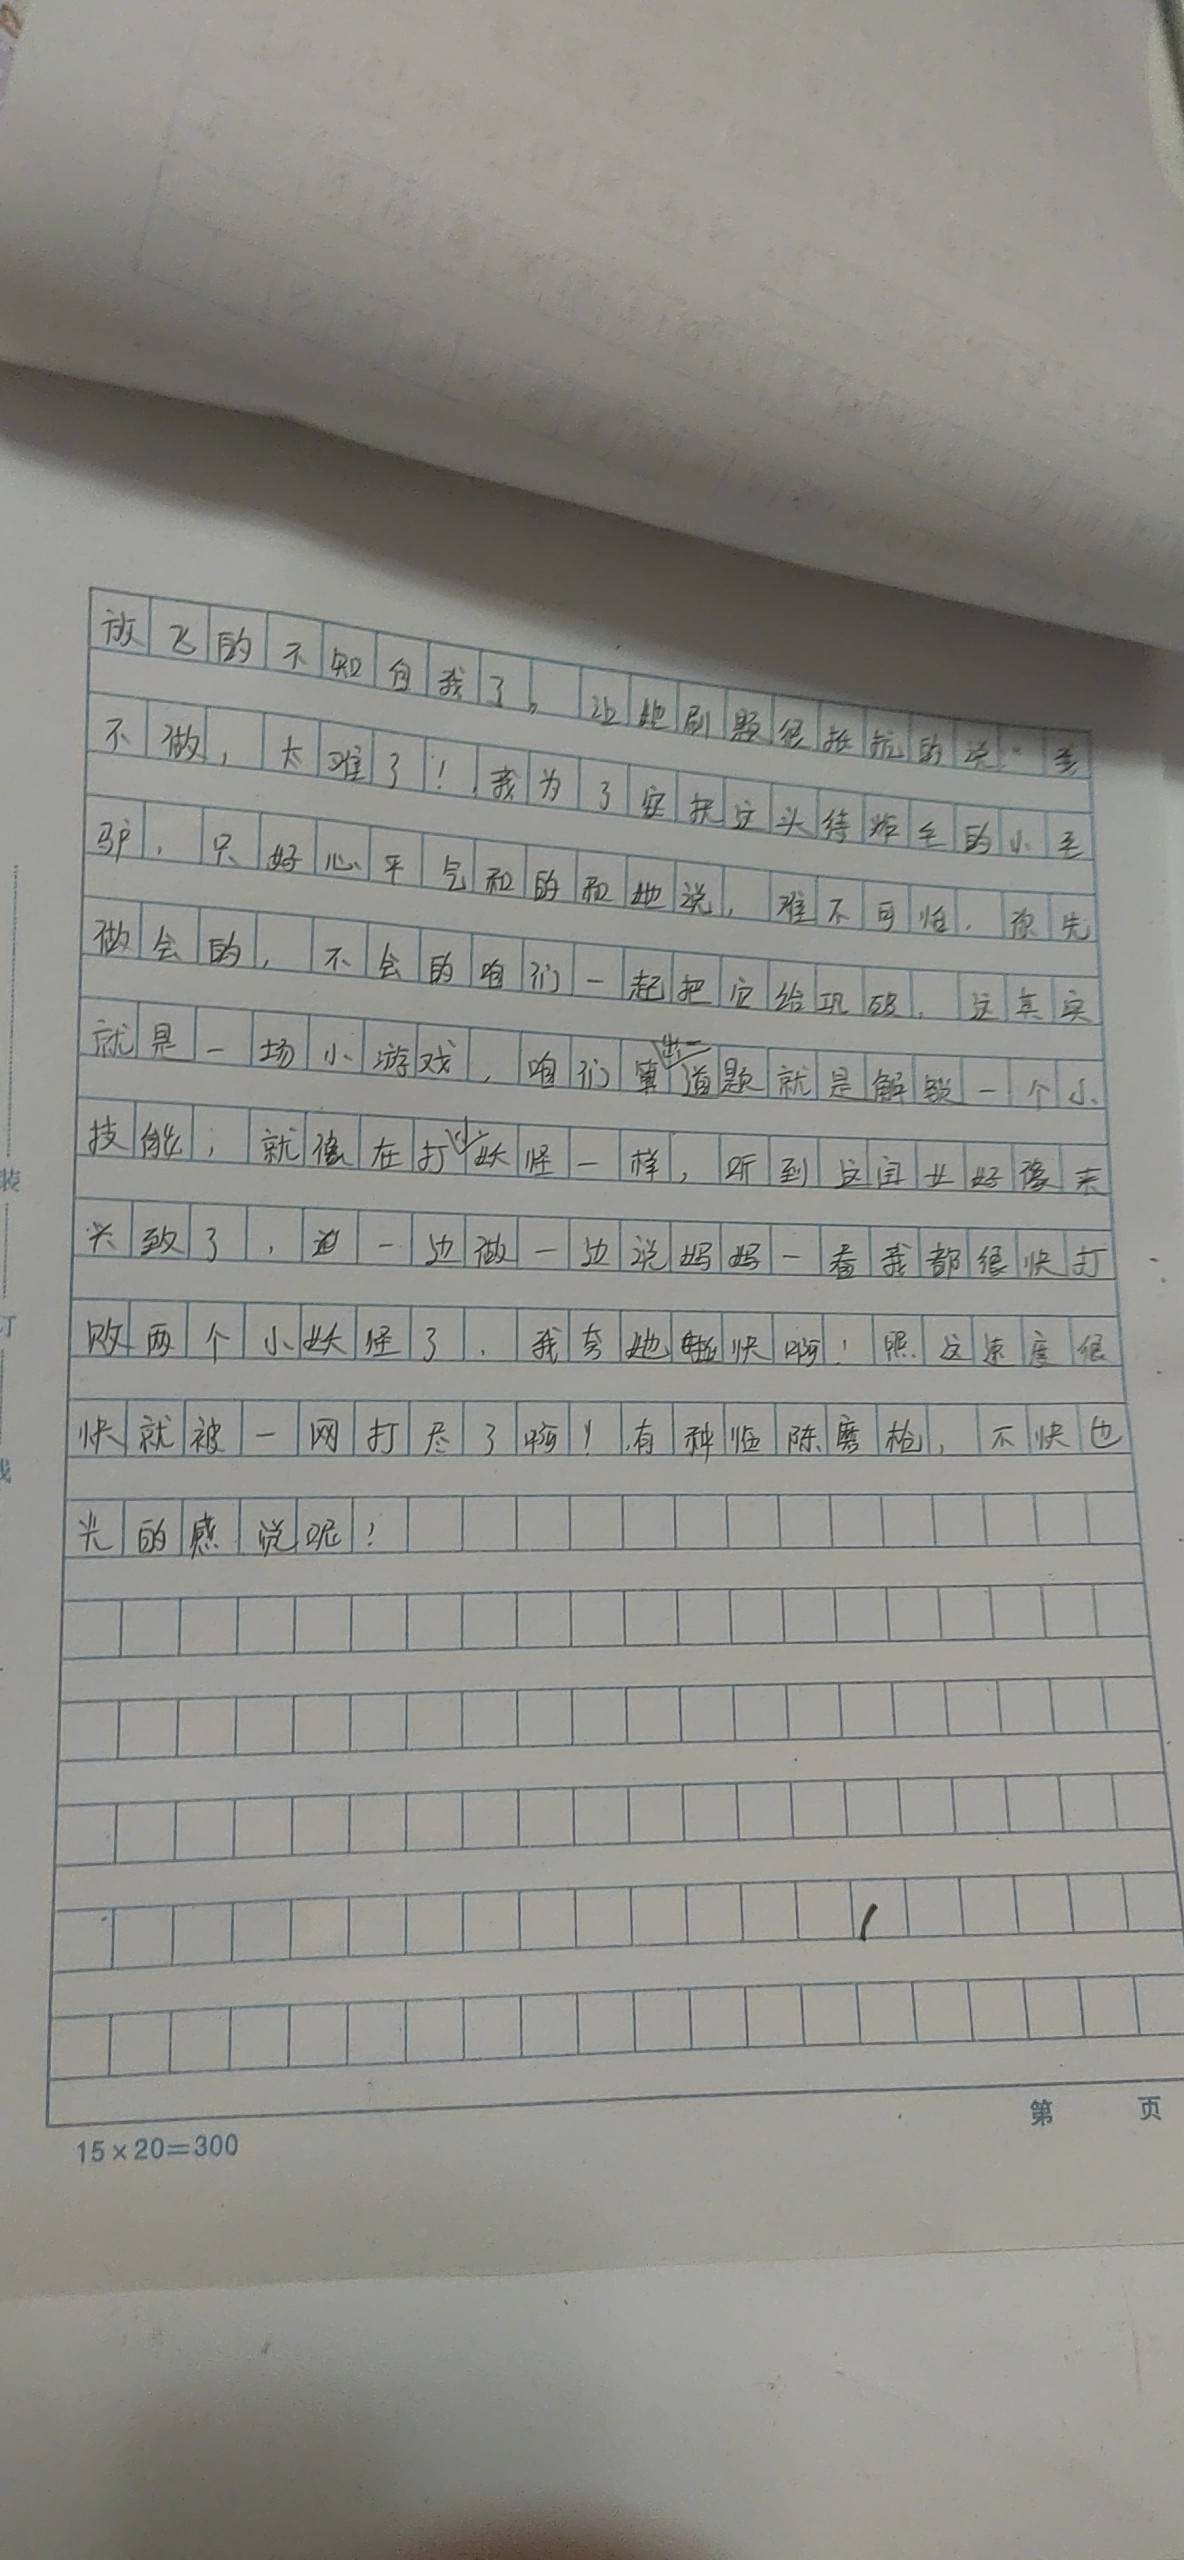 放飞的不知自我了。让她刷题很抵抗的说“我
不做,太难了!我为了安抚这头待炸毛的小毛
驴,只好心平气和的和她说,难不可怕,你先
做会的,不会的咱们一起把它给巩破,这其实
就是一场小游戏,咱们算出一道题就是解锁一个小
技能,就像在打小妖怪一样,听到这闺女好像来
兴致了,一边做一边说妈妈一看我都很快打
败两个小妖怪了,我夸她快啊!照这速度很
快就被一网打尽了啊!有种临陈磨枪,不快也
光的感说呢!
15×20=300
第 页
装
订
线